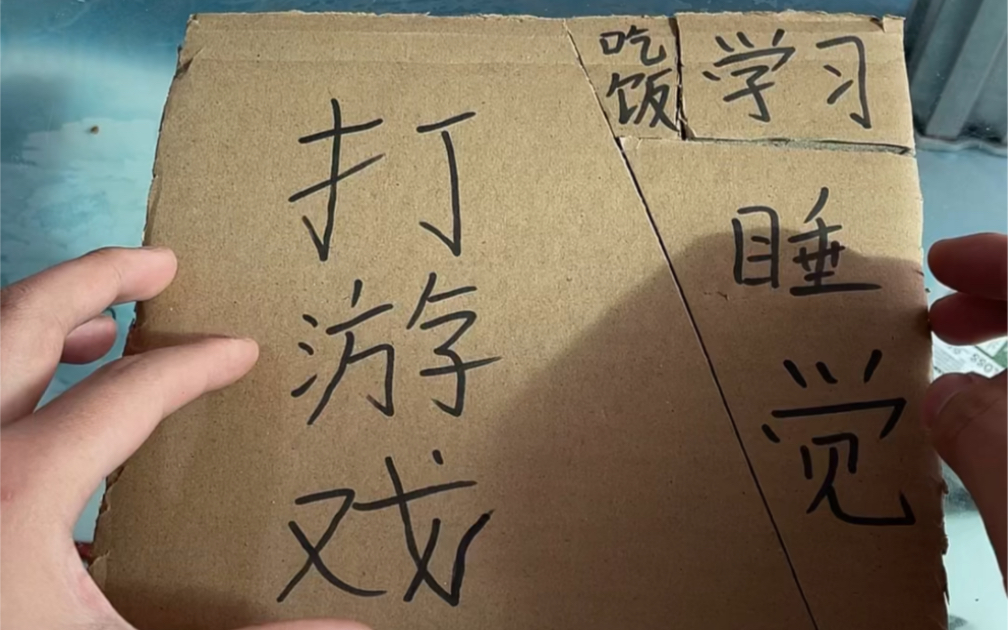 打
游
戏
吃
饭
学习
睡
觉